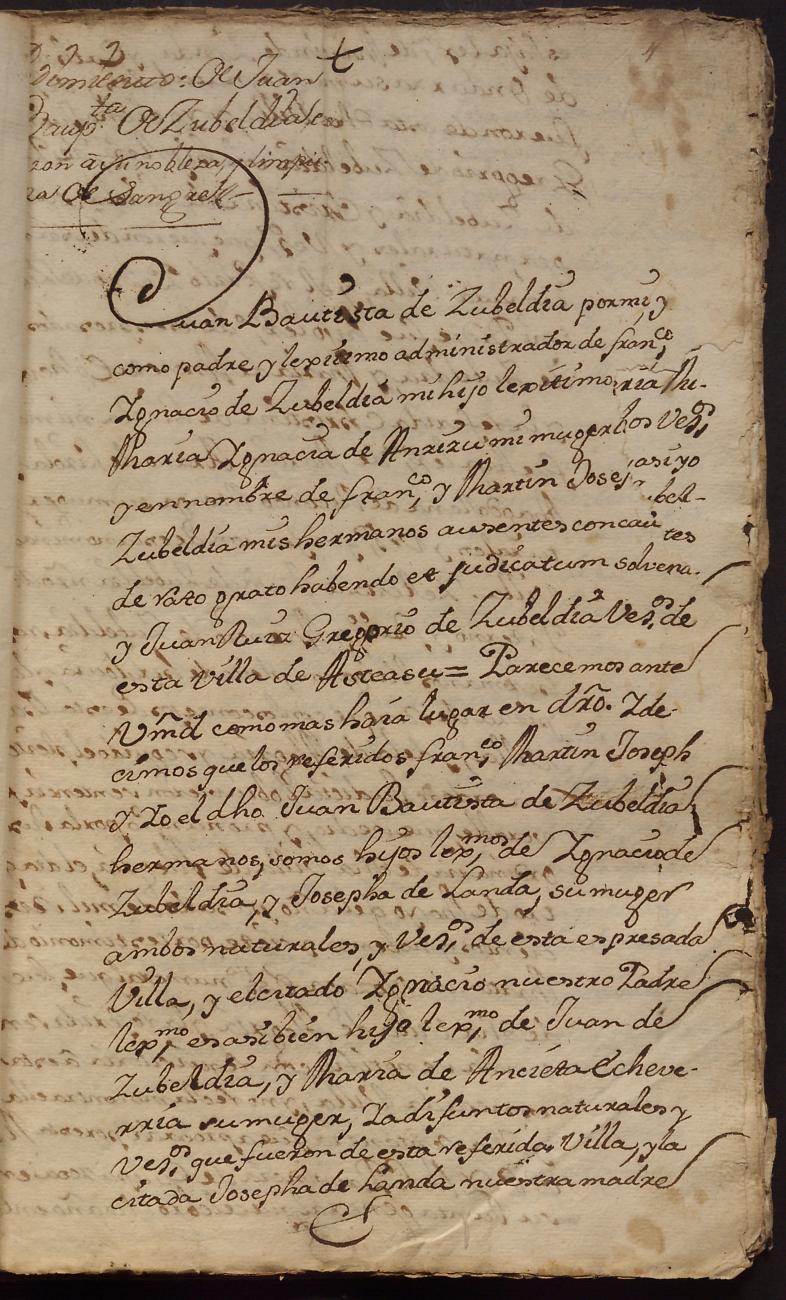 De Juan
Baup.ta De Zubeldia
nobleza, y limpie
za De Sangre
Juan Bautista de Zubeldia por mi, y
como padre, y lexitimo administrador de fran.co
Ygnacio de Zubeldia mi hijo lexitimo,
Maria Ygnacia de mi muger Vez.os
y en nombre de fran.co, y Martin Josef
Zubeldia mis hermanos ausentes con cau
de rato grato habendo et judicatum solvena.
y Juan Gregorio de Zubeldia Vez.os de
esta Villa de Asteasu = Parecemos ante
Vmd como mas haia lugar en dro. Y de
cimos que los referidos fran.co Martin Joseph
y Yo el dho Juan Bautista de Zubeldia
hermanos, somos hijos lex.mos de Ygnacio de
Zubeldia, y Josepha de Landa, su muger
ambos naturales, y Vez.os de esta espresada
Villa, y el citado Ygnacio nuestro Padre
lex.mo es asibien hijo lex.mo de Juan de
Zubeldia, y Maria de Ancieta Echeve-
rria su muger, Ya difuntos naturales y
Vez.os que fueron de esta referida Villa, y la
citada Josepha de Landa nuestra madre